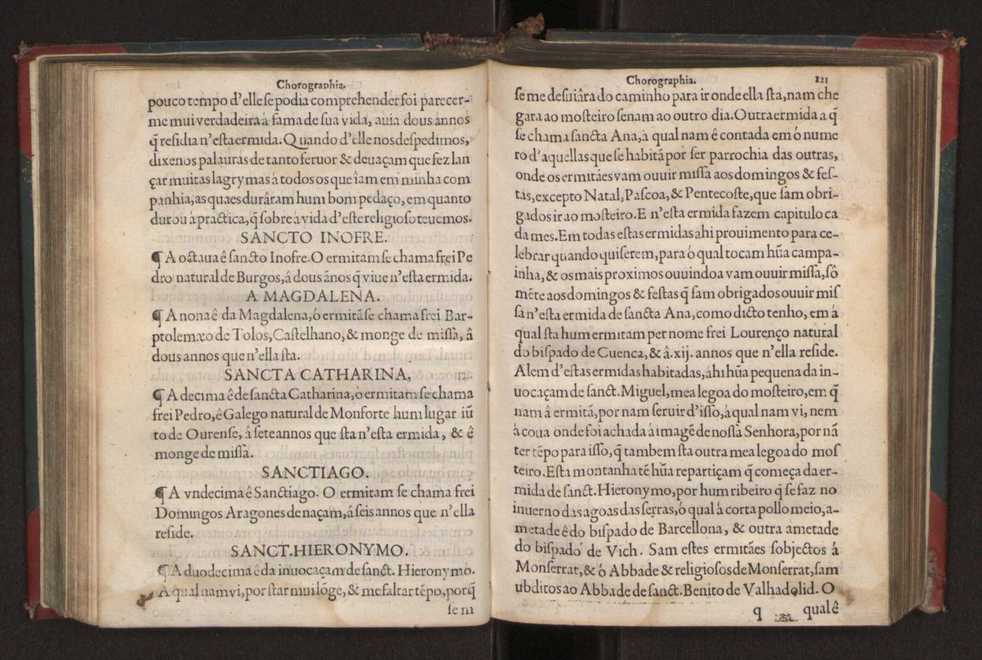 Chorographia.
pouco tempo d'elle se podia comprehender foi parecer-
me mui verdadeira à fama de sua vida, auia dous annos
q̃ residia n'esta ermida. Quando d'elle nos despedimos,
dixe nos palauras de tanto feruor & deuaçam que fez lan
çar muitas lagrymas à todos os que iam em minha com
panhia, as quaes durâram hum bom pedaço, em quanto
durou à practica, q̃ sobre à vida d'este religioso teuemos.
SANCTO INOFRE.
¶ A octaua é sancto Inofre. O ermitam se chama frei Pe
dro natural de Burgos, á dous ânos q̃ viue n'esta ermida.
A MAGDALENA.
¶ A nona é da Magdalena, ó ermitã se chama frei Bar-
ptolemxo de Tolos, Castelhano, & monge de missa, â
dous annos que n'ella sta.
SANCTA CATHARINA,
¶ A decima é de sancta Catharina, o ermitam se chama
frei Pedro, é Galego natural de Monforte hum lugar iũ
to de Ourense, â sete annos que sta n'esta ermida, & ê
monge de missa.
SANCTIAGO.
¶ A vndecima é Sanctiago. O ermitam se chama frei
Domingos Aragones de naçam, â seis annos que n'ella
reside.
SANCT. HIERONYMO.
¶ A duodecima é da inuocaçam de sanct. Hieronymo.
A qual nam vi, por star mui lõge, & me faltar tẽpo, porq̃
se m
Chorographia. 121
se me desuiâra do caminho para ir onde ella sta, nam che
gara ao mosteiro senam ao outro dia. Outra ermida a q̃
se chama sancta Ana, à qual nam é contada em ó nume
ro d'aquellas que se habitã por ser parrochia das outras,
onde os ermitães vam ouuir missa aos domingos & fes-
tas, excepto Natal, Pascoa, & Pentecoste, que sam obri-
gados ir ao mosteiro. E n'esta ermida fazem capitulo ca
da mes. Em todas estas ermidas ahi prouimento para ce-
lebrar quando quiserem, para ó qual tocam hũa campa-
inha, & os mais proximos ouuindo a vam ouuir missa, só
mẽte aos domingos & festas q̃ sam obrigados ouuir mis
sa n'esta ermida de sancta Ana, como dicto tenho, em à
qual sta hum ermitam per nome frei Lourenço natural
do bispado de Cuenca, & â .xij. annos que n'ella reside.
Alem d'estas ermidas habitadas, ahi hũa pequena da in-
uocaçam de sanct. Miguel, mea legoa do mosteiro, em q̃
nam â ermitã, por nam seruir d'isso, à qual nam vi, nem
à coua onde foi achada à imagẽ de nossa Senhora, por nã
ter tẽpo para isso, q̃ tambem sta outra mea legoa do mos
teiro. Esta montanha tẽ hũa repartiçam q̃ começa da er-
mida de sanct. Hieronymo, por hum ribeiro q̃ se faz no
inuerno das agoas das serras, ó qual à corta pollo meio, a-
metade é do bispado de Barcellona, & outra ametade
do bispado de Vich. Sam estes ermitães sobjectos á
Monserrat, & ó Abbade & religiosos de Monserrat, sam
ubditos ao Abbade de sanct. Benito de Valhadolid. O
q qualê